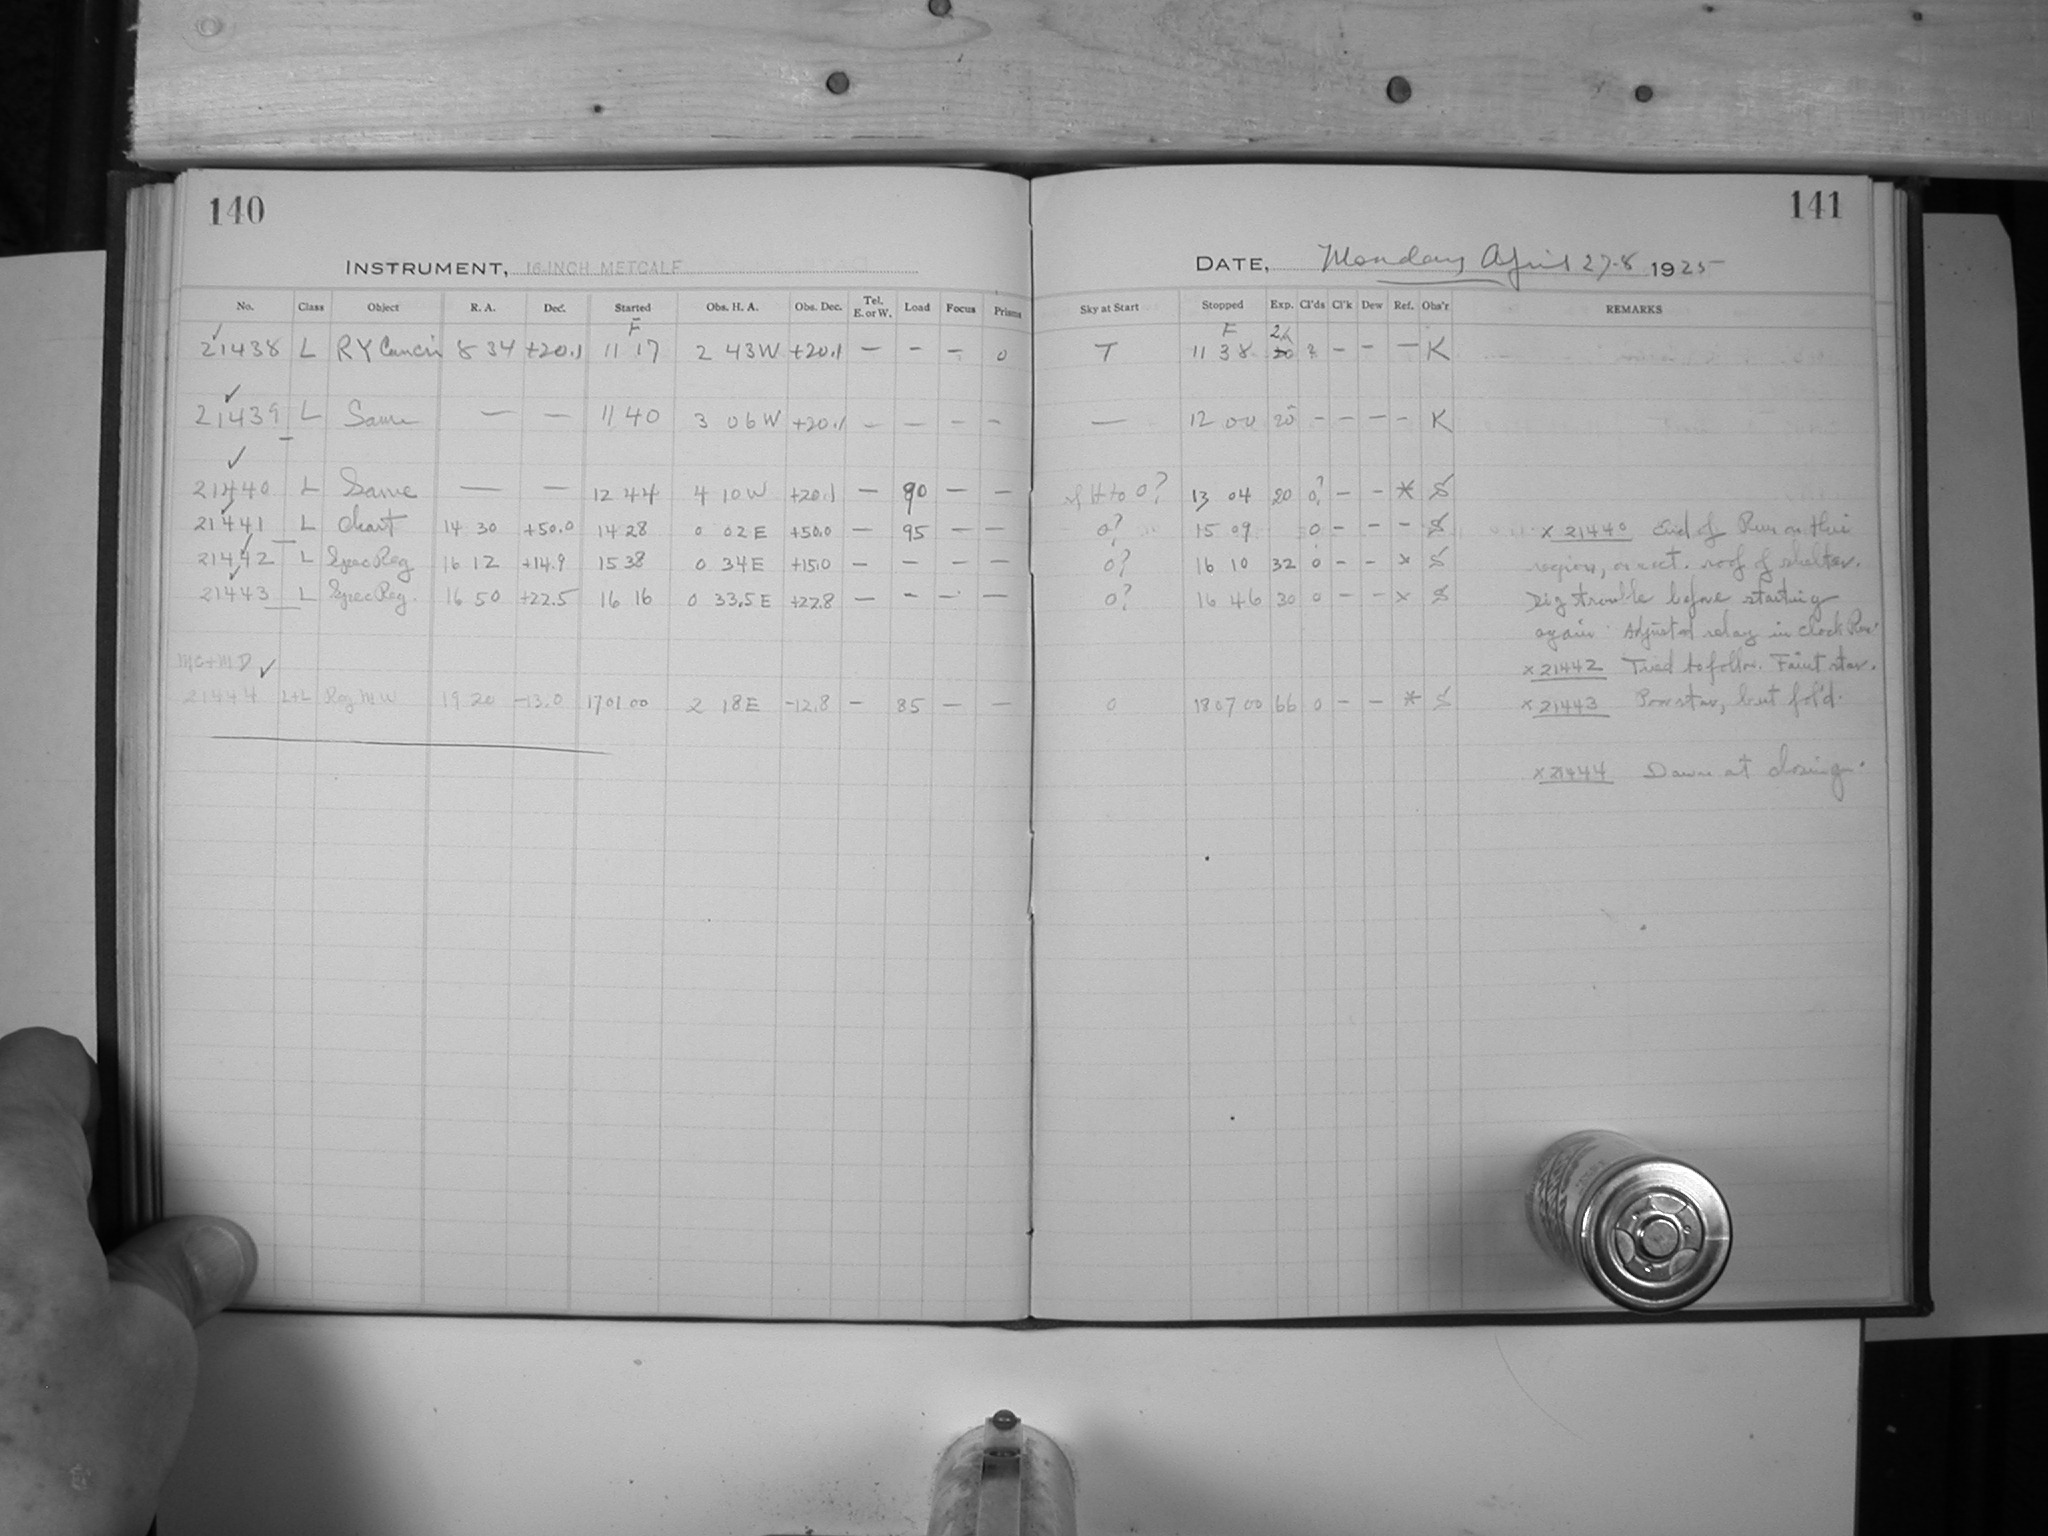 140
INSTRUMENT, 16-INCH METCALF
No. Class Object R. A. Dec. Started Obs. H. A. Obs. Dec. Tel. E. or W. Load Focus Prisms
F
21438 L RY Cancri 8 34 +20.1 11 17 2 43 W +20.1 — — — 0
21439 L Same — — 11 40 3 06 W +20.1 — — — —
21440 L Same — — 12 44 4 10 W +20.1 — 90 — —
21441 L Chart 14 30 +50.0 14 28 0 02 E +50.0 — 95 — —
21442 L Spec Reg 16 12 +14.9 15 38 0 34 E +15.0 — — — —
21443 L Spec Reg. 16 50 +22.5 16 16 0 33.5 E +22.8 — — — —
MC+MD
21444 L+L Reg. MW 19 20 -13.0 17 01 00 2 18 E -12.8 — 85 — —
141
DATE, Monday April 27-8 1925
Sky at Start Stopped Exp. Cl'ds Cl'k Dew Ref. Obs'r REMARKS
F
T 11 38 20 ? — — — K
— 12 00 20 — — — — K
to 0? 13 04 20 0? — — * S
0? 15 09 0 — — — S × 21440 End of Run on this
0? 16 10 32 0 — — × S region, on act. roof of shelter.
0? 16 46 30 0 — — × S Dig trouble before starting
again. Adjusted relay in Clock Rm.
× 21442 Tried to follow. Faint star.
0 18 07 00 66 0 — — * S × 21443 Poor star, but fol'd.
× 21444 Dawn at closing.